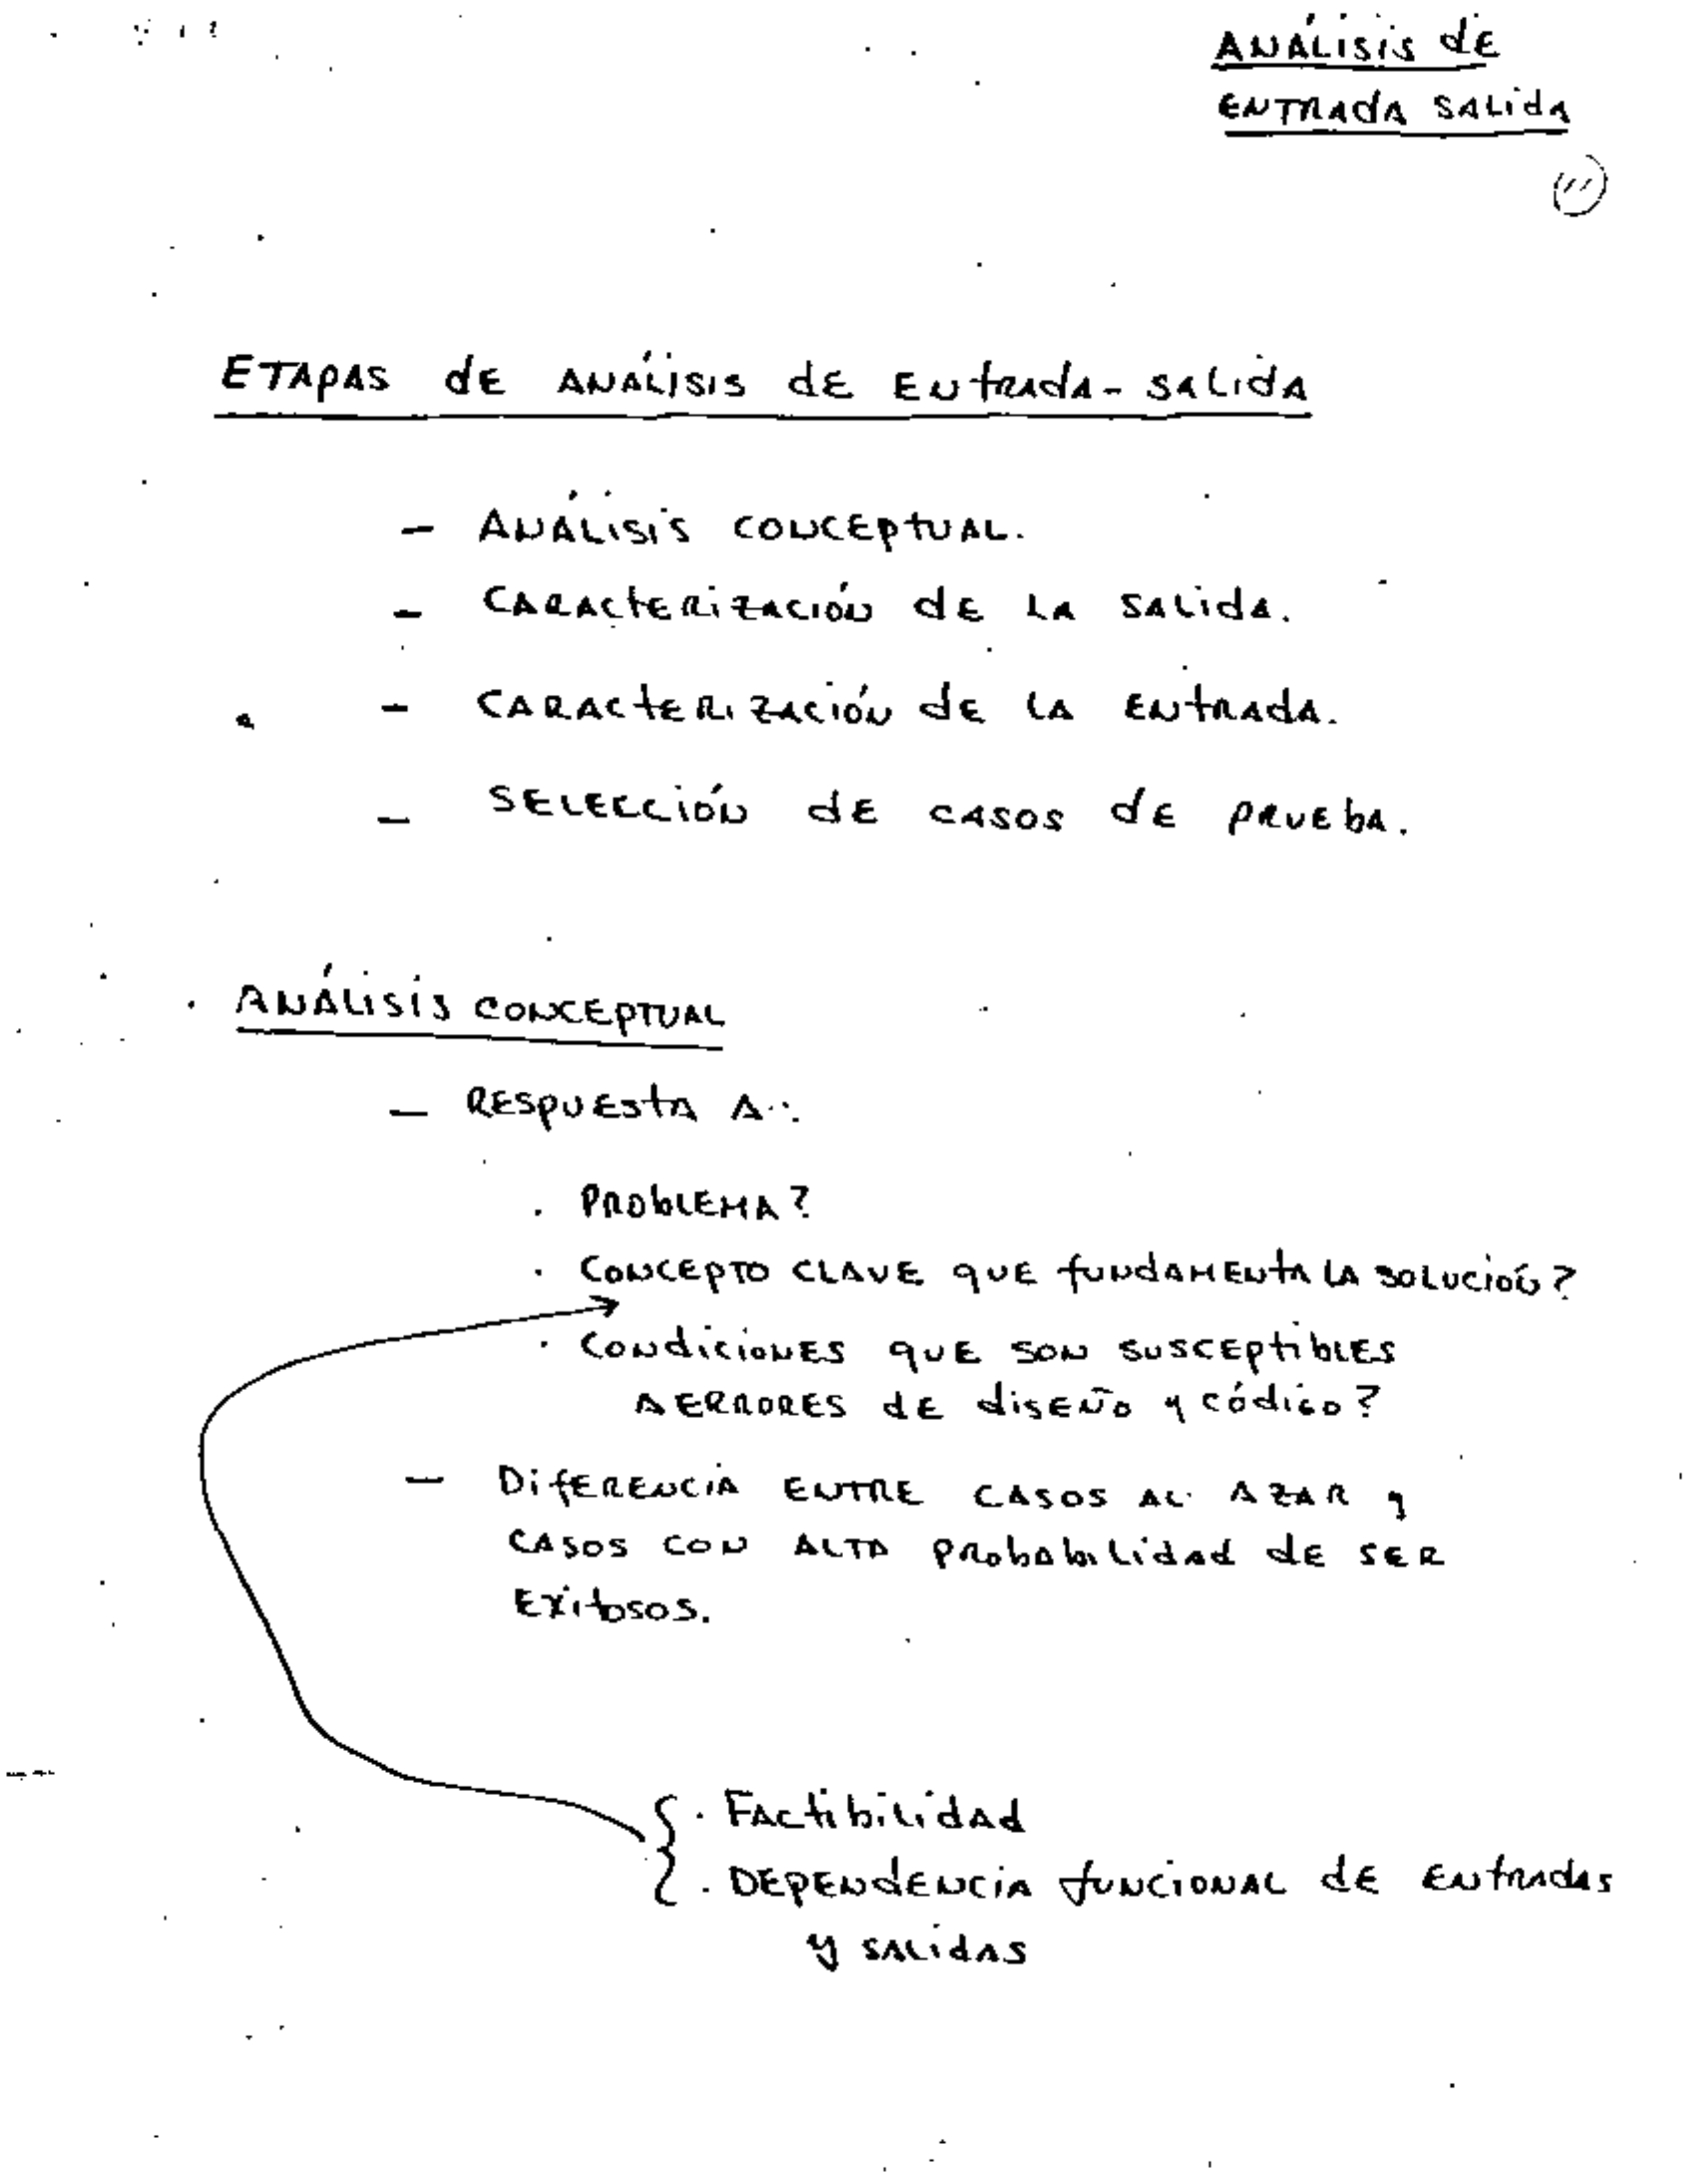 ANÁLISIS dE
ENTRAdA SALIdA
ETAPAS dE ANÁLISIS dE ENtRAdA-SALIdA
- ANÁLISIS CONCEPtUAL.
- CARACtERIZACIÓN dE LA SALIdA.
- CARACtERIZACIÓN dE LA ENtRAdA.
- SELECCIÓN dE CASOS dE PRUEbA.
. ANÁLISIS CONCEPTUAL
- RESPUEStA A:
. PRObLEMA?
. CONCEPTO CLAVE QUE fUNdAMENtA LA SOLUCIÓN?
. CONdICIONES QUE SON SUSCEPtIbLES
A ERRORES dE dISEÑO y CÓdIGO?
- DIfERENCIA ENTRE CASOS AL AZAR y
CASOS CON ALTA PRObAbILIdAd dE SER
EXItOSOS.
{ . FACtIbILIdAd
. DEPENdENCIA fUNCIONAL dE ENtRAdAS
y SALIdAS